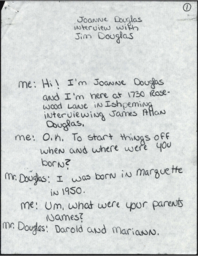 ①
Joanne Douglas
interview with
Jim Douglas
me: Hi! I'm Joanne Douglas
and I'm here at 1730 Rose-
wood Lane in Ishpeming
interviewing James Allan
Douglas.
me: O.k. To start things off
when and where were you
born?
Mr. Douglas: I was born in Marquette
in 1950.
me: Um, what were your parents
names?
Mr. Douglas: Darold and Mariann.